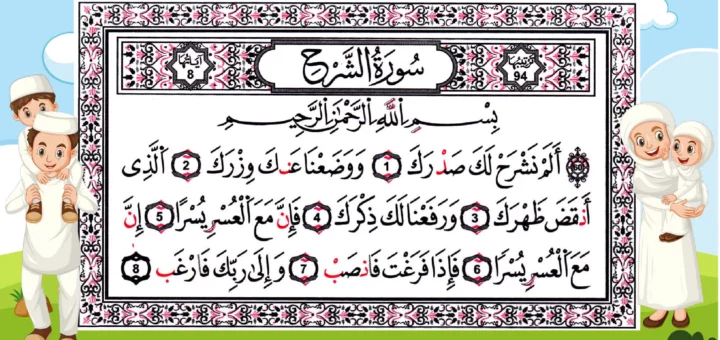 ترتيبها 94 سُورَةُ الشَّرْحِ آياتها 8
بِسْمِ اللَّهِ الرَّحْمَٰنِ الرَّحِيمِ
أَلَمْ نَشْرَحْ لَكَ صَدْرَكَ 1 وَوَضَعْنَا عَنكَ وِزْرَكَ 2 الَّذِي
أَنقَضَ ظَهْرَكَ 3 وَرَفَعْنَا لَكَ ذِكْرَكَ 4 فَإِنَّ مَعَ الْعُسْرِ يُسْرًا 5 إِنَّ
مَعَ الْعُسْرِ يُسْرًا 6 فَإِذَا فَرَغْتَ فَانصَبْ 7 وَإِلَىٰ رَبِّكَ فَارْغَب 8